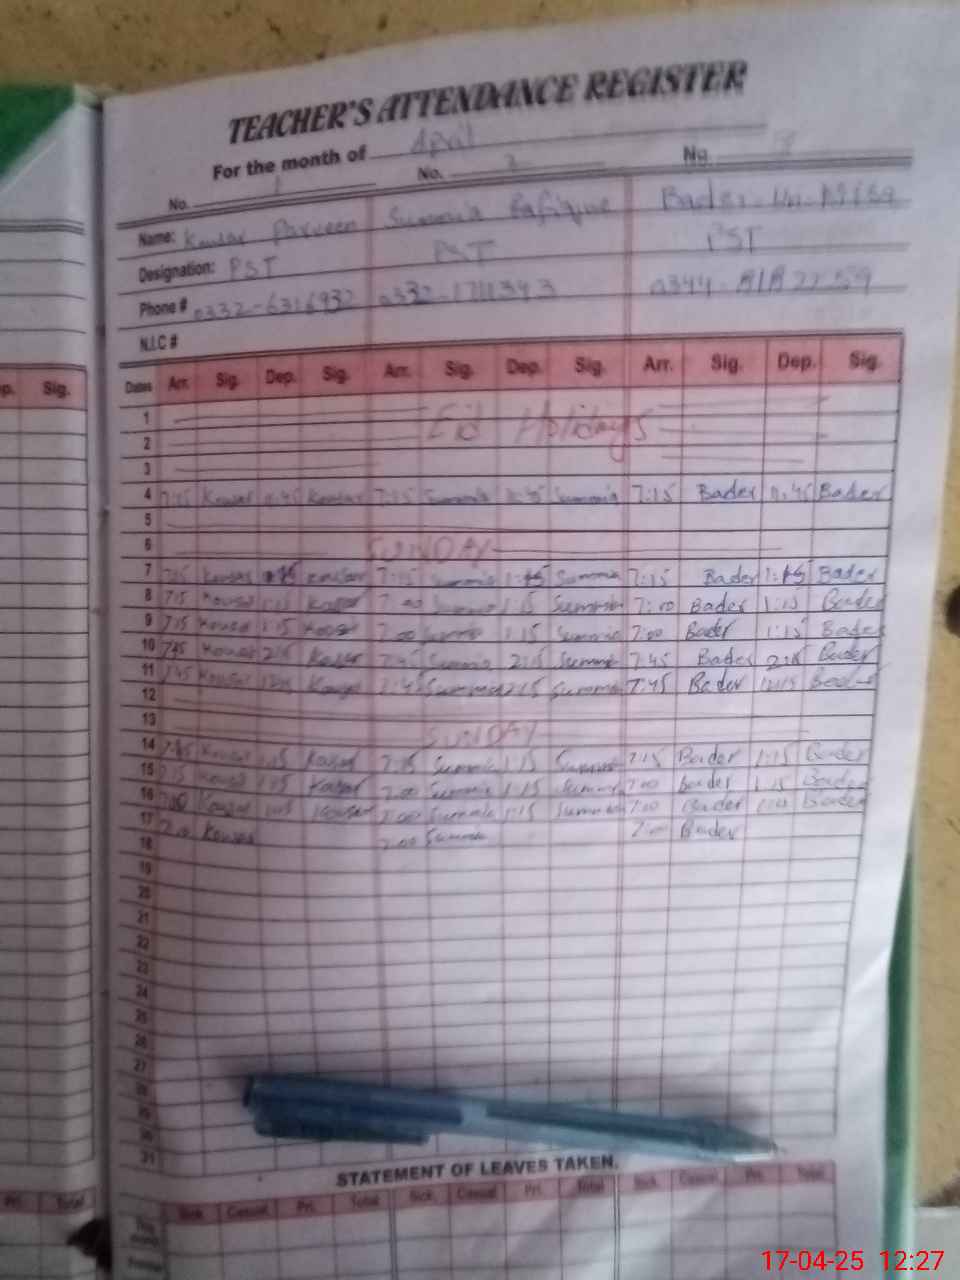 TEACHER'S ATTENDANCE REGISTER
For the month of April
No. 1 No. 2 No.
Name: Parveen Summia Rafique Bader-Un-Nisa
Designation: PST PST PST
Phone # 0332-6316932 0332-1711343 0344-
N.I.C #
Dates Arr. Sig. Dep. Sig. Arr. Sig. Dep. Sig. Arr. Sig. Dep. Sig.
1 Eid Holidays
2
3
4 7:15 Kousar 11:45 Kousar 7:15 Summia 11:45 Summia 7:15 Bader 11:45 Bader
5
6 SUNDAY
7 7:15 Kousar Kousar 7:15 Summia 1:15 Summia 7:15 Bader 1:15 Bader
8 7:15 Kousar 1:15 Kousar 7:00 Summia 1:15 Summia 7:00 Bader 1:15 Bader
9 7:15 Kousar 1:15 Kousar 7:00 Summia 1:15 Summia 7:00 Bader 1:15 Bader
10 7:45 Kousar 2:15 Kousar 7:45 Summia 2:15 Summia 7:45 Bader 2:15 Bader
11 7:45 Kousar Kousar 7:45 Summia Summia 7:45 Bader 12:15 Bader
12
13 SUNDAY
14 Kousar 1:15 Kousar 7:15 Summia 1:15 Summia 7:15 Bader 1:15 Bader
15 7:15 Kousar 1:15 Kousar 7:00 Summia 1:15 Summia 7:00 Bader 1:15 Bader
16 7:00 Kousar Kousar 7:00 Summia 1:15 Summia 7:00 Bader Bader
17 7:00 Kousar 7:00 Summia 7:00 Bader
18
19
20
21
22
23
24
25
26
27
28
29
30
31
STATEMENT OF LEAVES TAKEN.
Sick. Casual Pri. Total Sick. Casual Pri. Total Sick. Casual Pri. Total
17-04-25 12:27